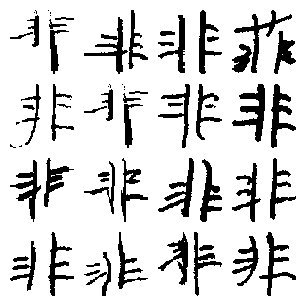 非非非菲
非非非非
非非非非
非非非非